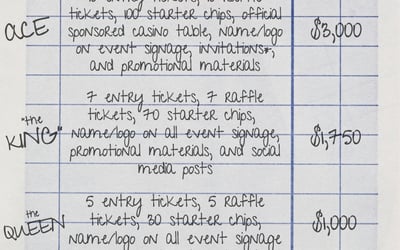 ACE
tickets, 100 starter chips, official
sponsored casino table, name/logo
on event signage, invitations*,
and promotional materials
$3,000
"the
KING"
7 entry tickets, 7 raffle
tickets, 70 starter chips,
name/logo on all event signage,
promotional materials, and social
media posts
$1,750
the
QUEEN
5 entry tickets, 5 raffle
tickets, 30 starter chips,
name/logo on all event signage
$1,000